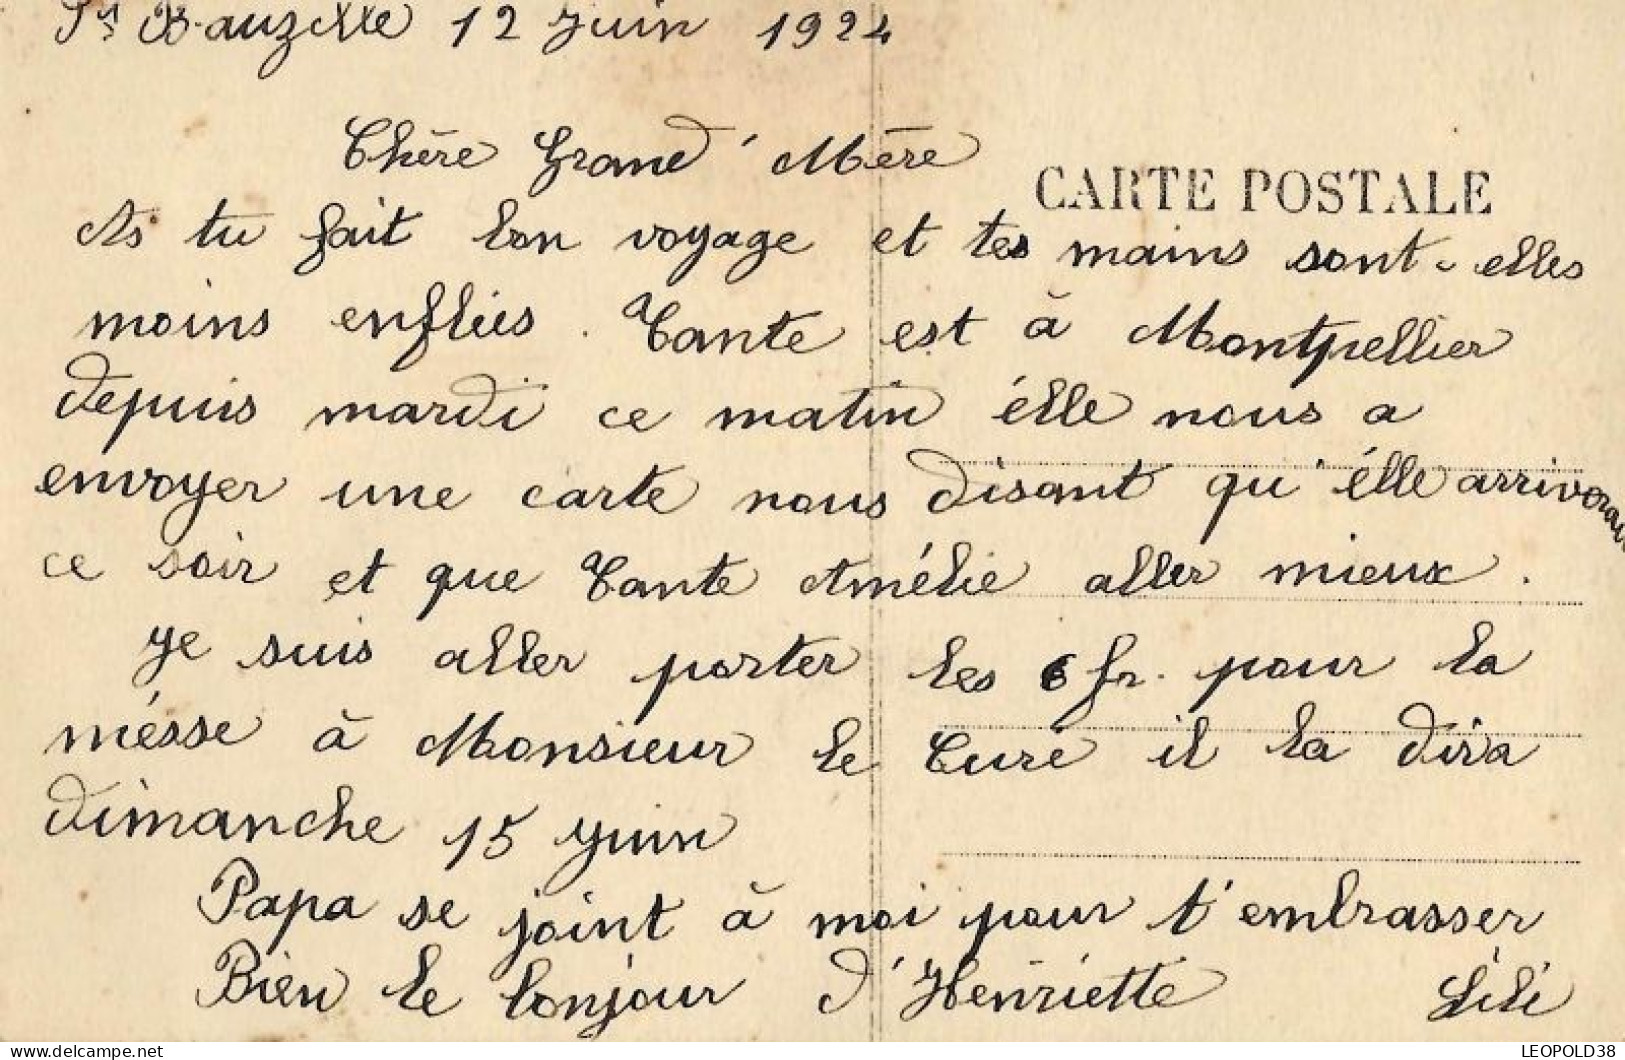 St Bauzille 12 Juin 1924
Chère Grand' Mère
CARTE POSTALE
As tu fait bon voyage et tes mains sont-elles
moins enflées. Tante est à Montpellier
depuis mardi ce matin élle nous a
envoyer une carte nous disant qu'élle arriverait
ce soir et que Tante Amélie aller mieux.
Je suis aller porter les 6 fr. pour la
mésse à Monsieur le Curé il la dira
dimanche 15 Juin
Papa se joint à moi pour t'embrasser
Bien le bonjour d'Henriette Lili
LEOPOLD38